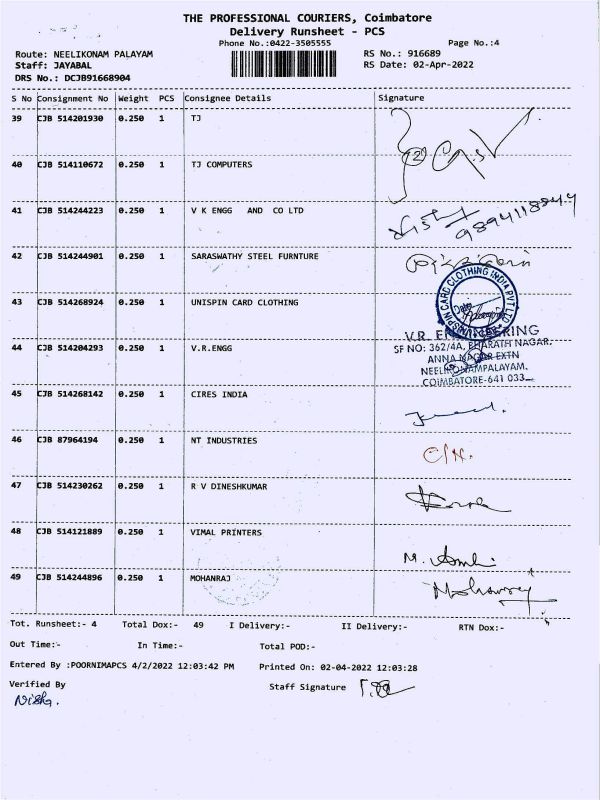 THE PROFESSIONAL COURIERS, Coimbatore
Delivery Runsheet - PCS
Phone No.:0422-3505555
Page No.:4
Route: NEELIKONAM PALAYAM
RS No.: 916689
Staff: JAYABAL
RS Date: 02-Apr-2022
DRS No.: DCJB91668904
S No Consignment No Weight PCS Consignee Details Signature
39 CJB 514201930 0.250 1 TJ
40 CJB 514110672 0.250 1 TJ COMPUTERS
41 CJB 514244223 0.250 1 V K ENGG AND CO LTD 9894118844
42 CJB 514244901 0.250 1 SARASWATHY STEEL FURNTURE
43 CJB 514268924 0.250 1 UNISPIN CARD CLOTHING
UNISPIN CARD CLOTHING INDIA PVT LTD
44 CJB 514204293 0.250 1 V.R.ENGG
V.R. ENGINEERING
SF NO: 362/4A, BHARATH NAGAR.
ANNA NAGAR EXTN
NEELIKONAMPALAYAM.
COIMBATORE-641 033
45 CJB 514268142 0.250 1 CIRES INDIA
46 CJB 87964194 0.250 1 NT INDUSTRIES
47 CJB 514230262 0.250 1 R V DINESHKUMAR
48 CJB 514121889 0.250 1 VIMAL PRINTERS
49 CJB 514244896 0.250 1 MOHANRAJ
Tot. Runsheet:- 4 Total Dox:- 49 I Delivery:- II Delivery:- RTN Dox:-
Out Time:- In Time:- Total POD:-
Entered By :POORNIMAPCS 4/2/2022 12:03:42 PM Printed On: 02-04-2022 12:03:28
Verified By Staff Signature